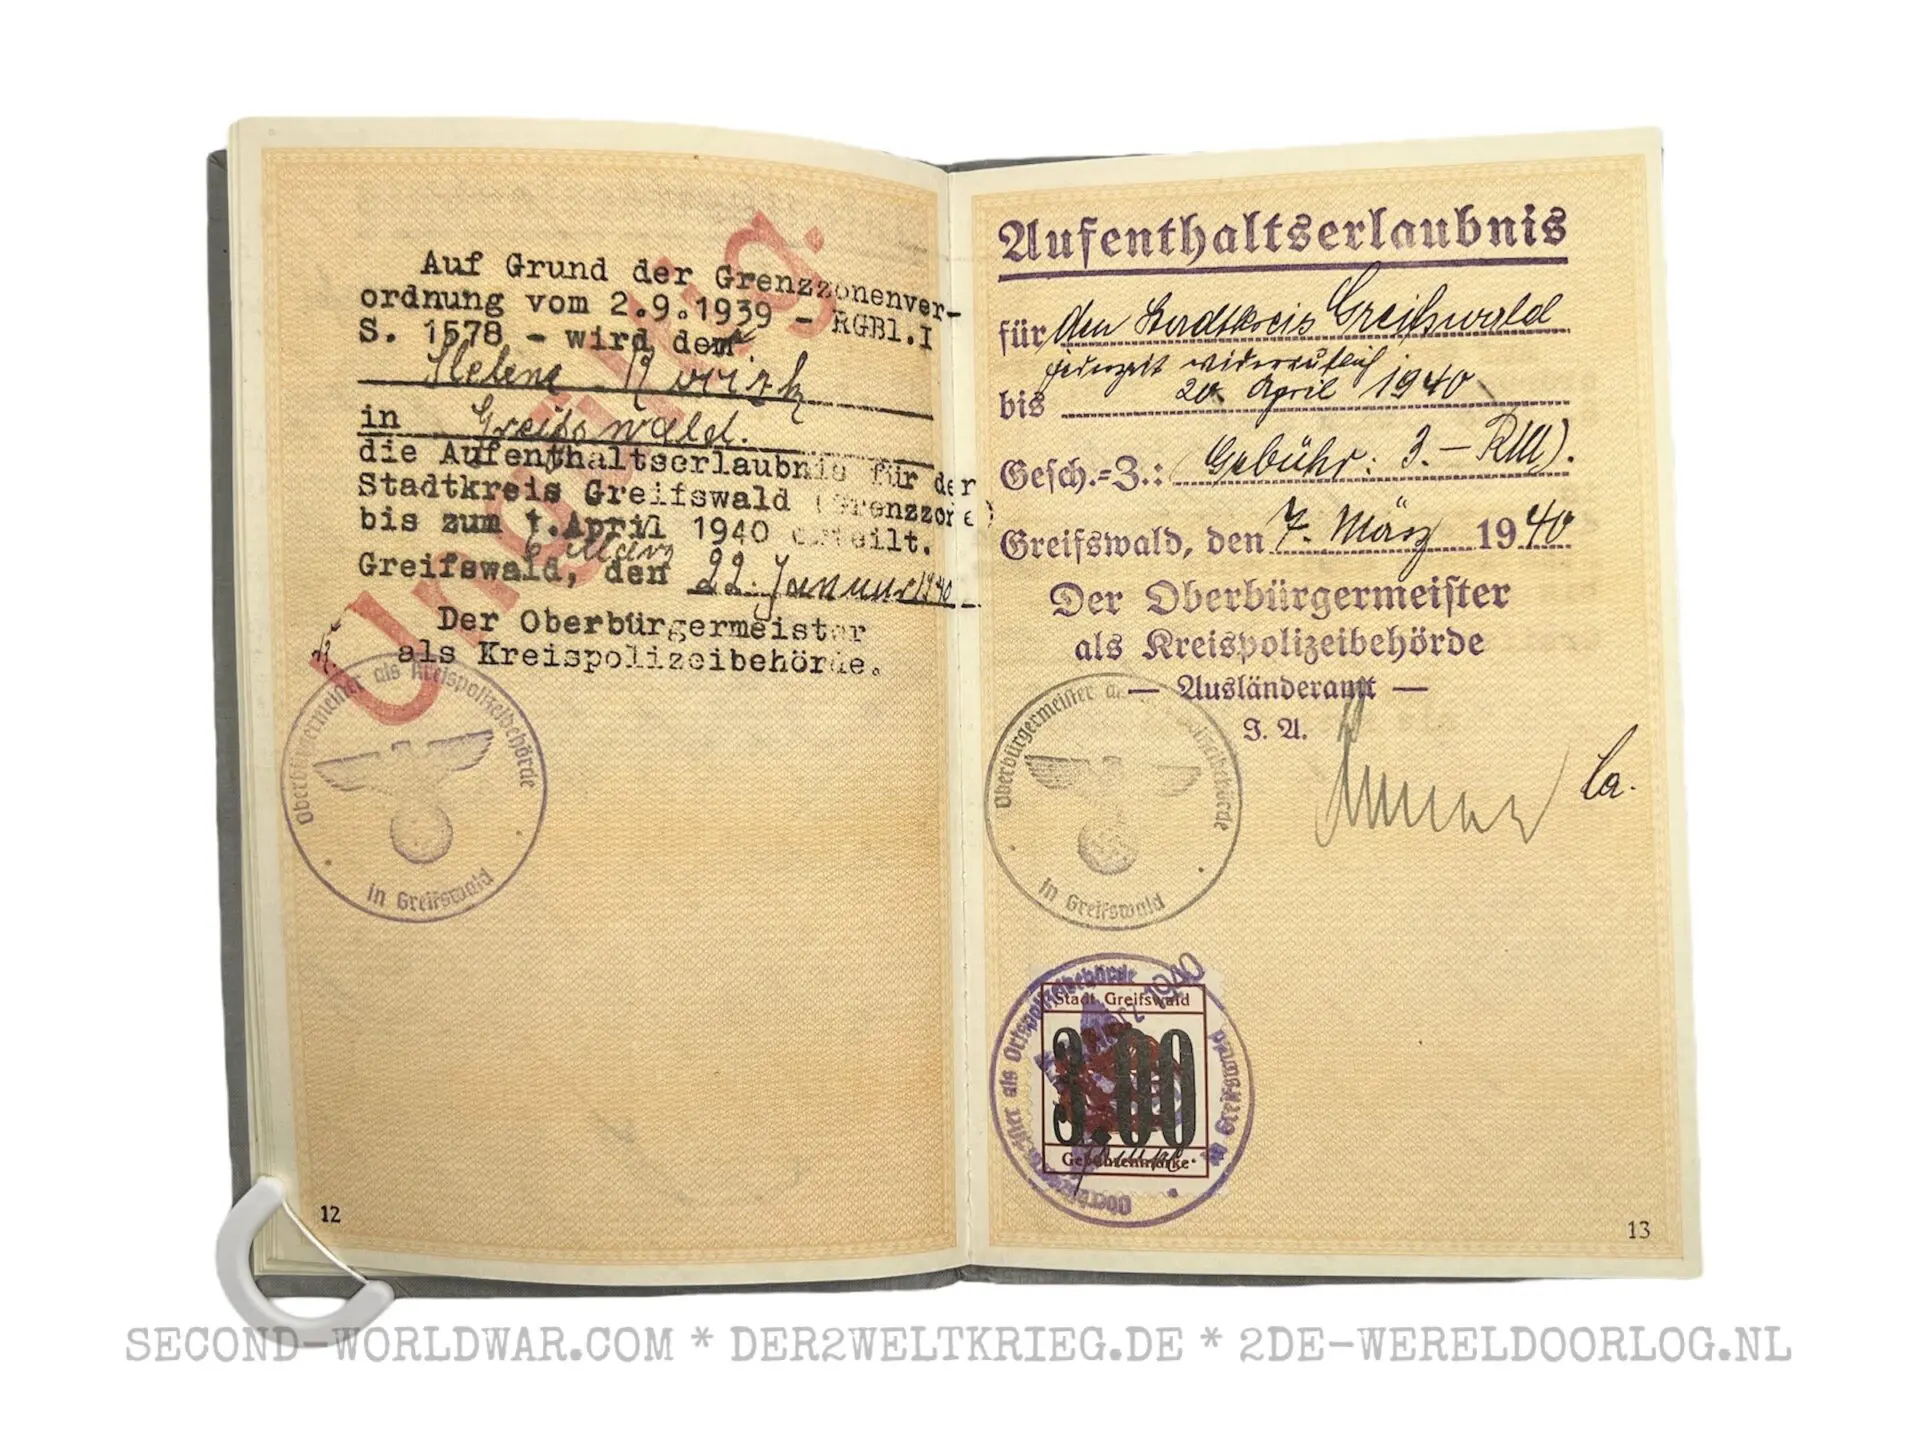 Auf Grund der Grenzzonenver-
ordnung vom 2.9.1939 - RGBl.I
S. 1578 - wird der
Helene
in Greifswald.
die Aufenthaltserlaubnis für den
Stadtkreis Greifswald (Grenzzone)
bis zum 1. April 1940 erteilt.
März
Greifswald, den 22. Januar 1940
Der Oberbürgermeister
als Kreispolizeibehörde.
Ungültig.
Oberbürgermeister als Kreispolizeibehörde
in Greifswald
12
Aufenthaltserlaubnis
für den Stadtkreis Greifswald
jederzeit widerruflich
bis 20. April 1940
Gesch.-Z.: (Gebühr: 3.- RM).
Greifswald, den 7. März 1940
Der Oberbürgermeister
als Kreispolizeibehörde
— Ausländeramt —
I. A.
La.
Oberbürgermeister als Kreispolizeibehörde
in Greifswald
Oberbürgermeister als Ortspolizeibehörde
in Greifswald
März 1940
Stadt Greifswald
3.00
Gebührenmarke
13
SECOND-WORLDWAR.COM * DER2WELTKRIEG.DE * 2DE-WERELDOORLOG.NL